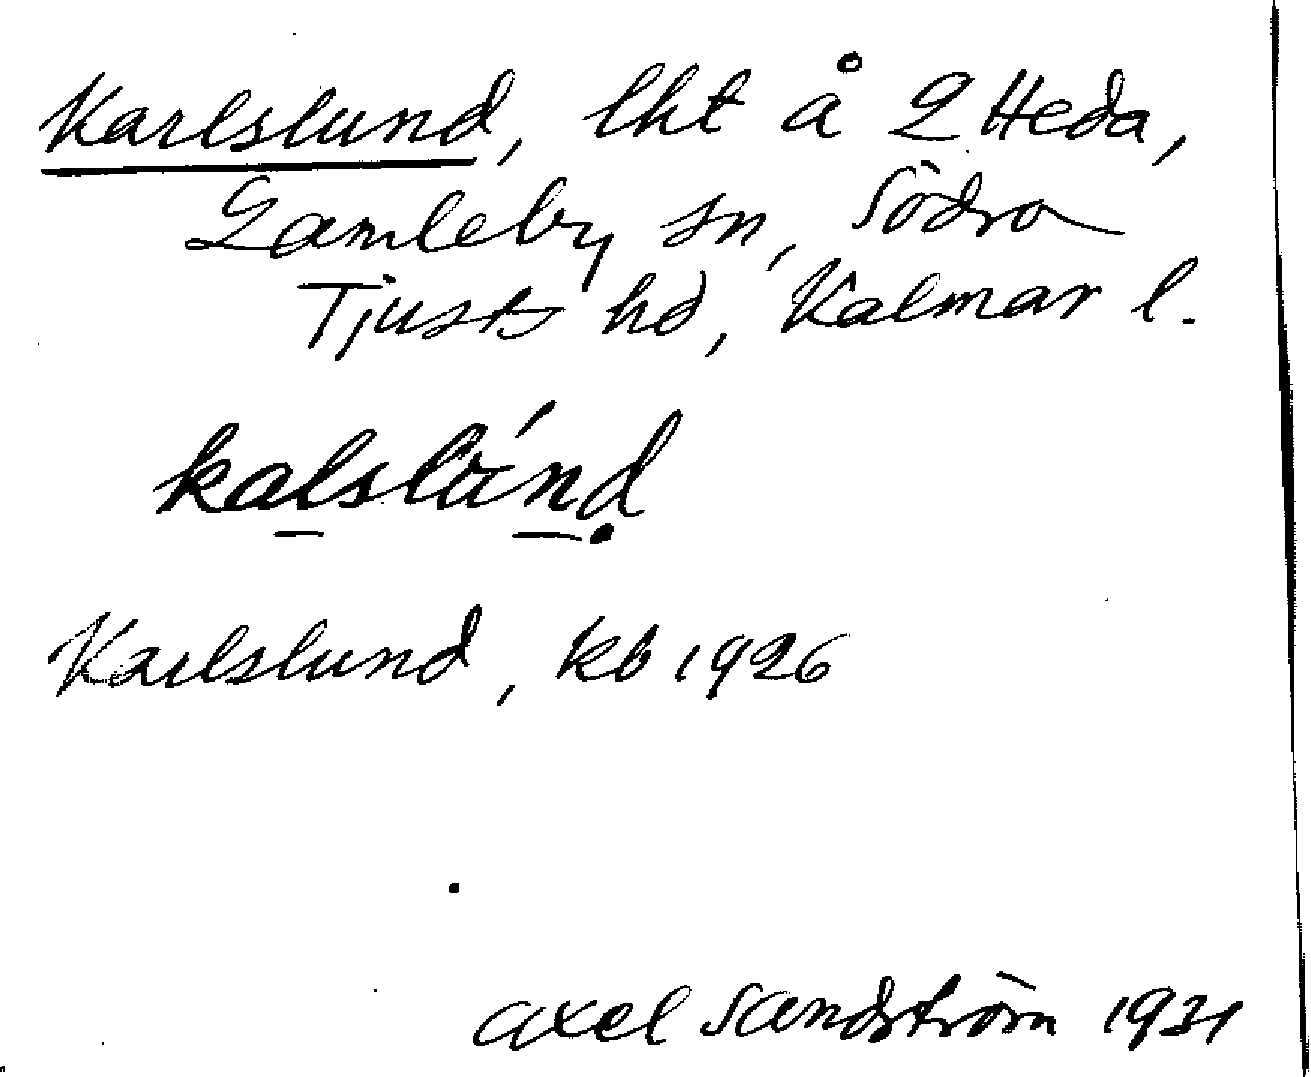 Karlslund, lht å 2 Heda,
Gamleby sn, Södra
Tjusts hd, Kalmar l.
kalslánd
Karlslund, kb 1926
Axel Sandström 1931